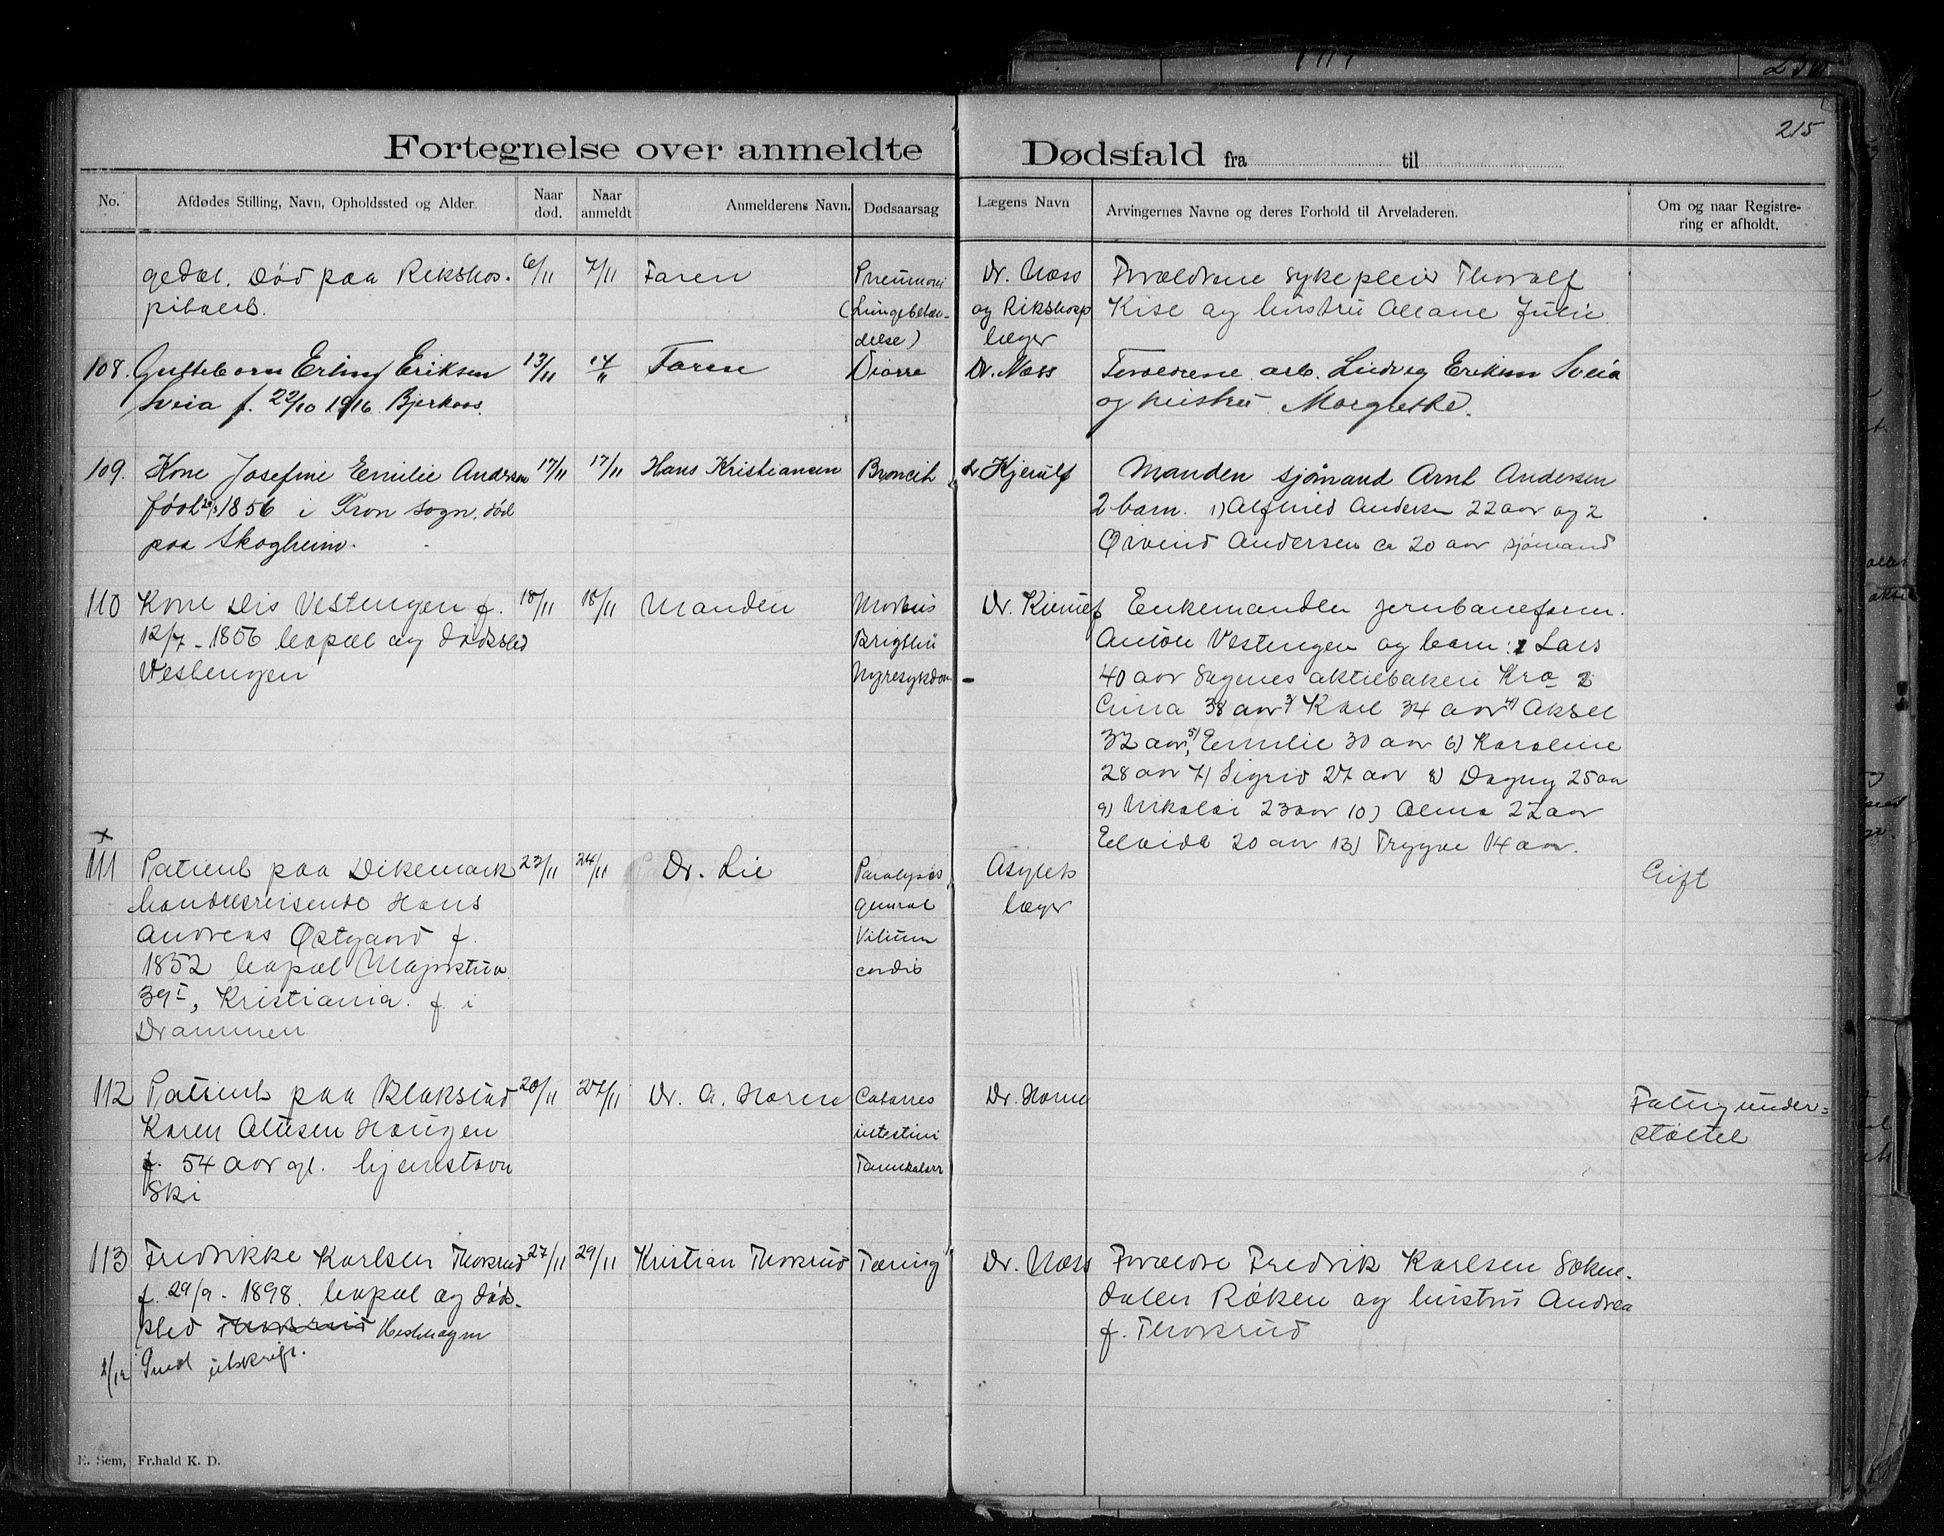 215
Fortegnelse over anmeldte Dødsfald fra til
No.
Afdødes Stilling, Navn, Opholdssted og Alder
Naar død.
Naar anmeldt
Anmelderens Navn.
Dødsaarsag
Lægens Navn
Arvingernes Navne og deres Forhold til Arveladeren.
Om og naar Registre-
ring er afholdt.
gedal. Død paa Rikshos- 6/11 7/11 Faren
pitalet.
(Lungebetæn-
delse)
Dr. Næss
og Rikshosp
læger
Forældrene sykepleier Thoralf
Kise og hustru Julie
108. Gutteborn Erling Eriksen 13/11 14/11 Faren Diarre Dr. Næss
Sveia f. 22/10 1916. Bjerkaas.
Forældrene arb. Ludvig Eriksen Sveia
og hustru Margrethe.
109. Kone Josefine Emilie Andersen 17/11 17/11 Hans Kristiansen Broncit Dr Kjerulf
født 1856 i Tron sogn, død
paa Skogheim.
Manden sjømand Arnt Andersen
2 barn. 1) Alfried Andersen 22 aar og 2
Øivind Andersen ca 20 aar sjømand
110 Kone Dis Vestengen f. 18/11 18/11 Manden Morbus Dr. Kierulf
12/7 - 1856 bopæl og dødssted
Vestengen
Brigthii
Nyresykdom
Enkemanden jernbaneform.
Anton Vestengen og barn: 1 Lars
40 aar Sagenes aktiebakeri Kra 2
38 aar 3) Karl 34 aar 4) Aksel
32 aar, 5) Emilie 30 aar 6) Karoline
28 aar 7) Sigrid 27 aar 8) Dagny 25 aar
9) Nikolai 23 aar 10) Alma 22 aar
20 aar 13) Trygve 14 aar.
111 Patient paa Dikemark 23/11 24/11 Dr. Lie Paralysis Asylets Gift
handelsreisende Hans general læger
Andreas Østgaard f. Vitium
1852 bopæl cordis
39 I, Kristiania. f. i
Drammen
112 Patient paa Blakstad 20/11 27/11 Dr. A. Horne Catarres Dr. Horne Fattigunder-
Karen Haugen intestini støttet
f. 54 aar gl. hjemstavn Tarmkatarr
Ski
113 Fredrikke Karlsen Thoksrud 27/11 29/11 Kristian Thoksrud Tæring Dr. Næss
f. 29/9 - 1898. bopæl og døds-
sted Thoksrud Hestehagen
2/12 Send utskrift.
Forældre Fredrik Karlsen
dalen Røken og hustru Andrea
f. Thoksrud
E. Sem, Fr.hald K. D.